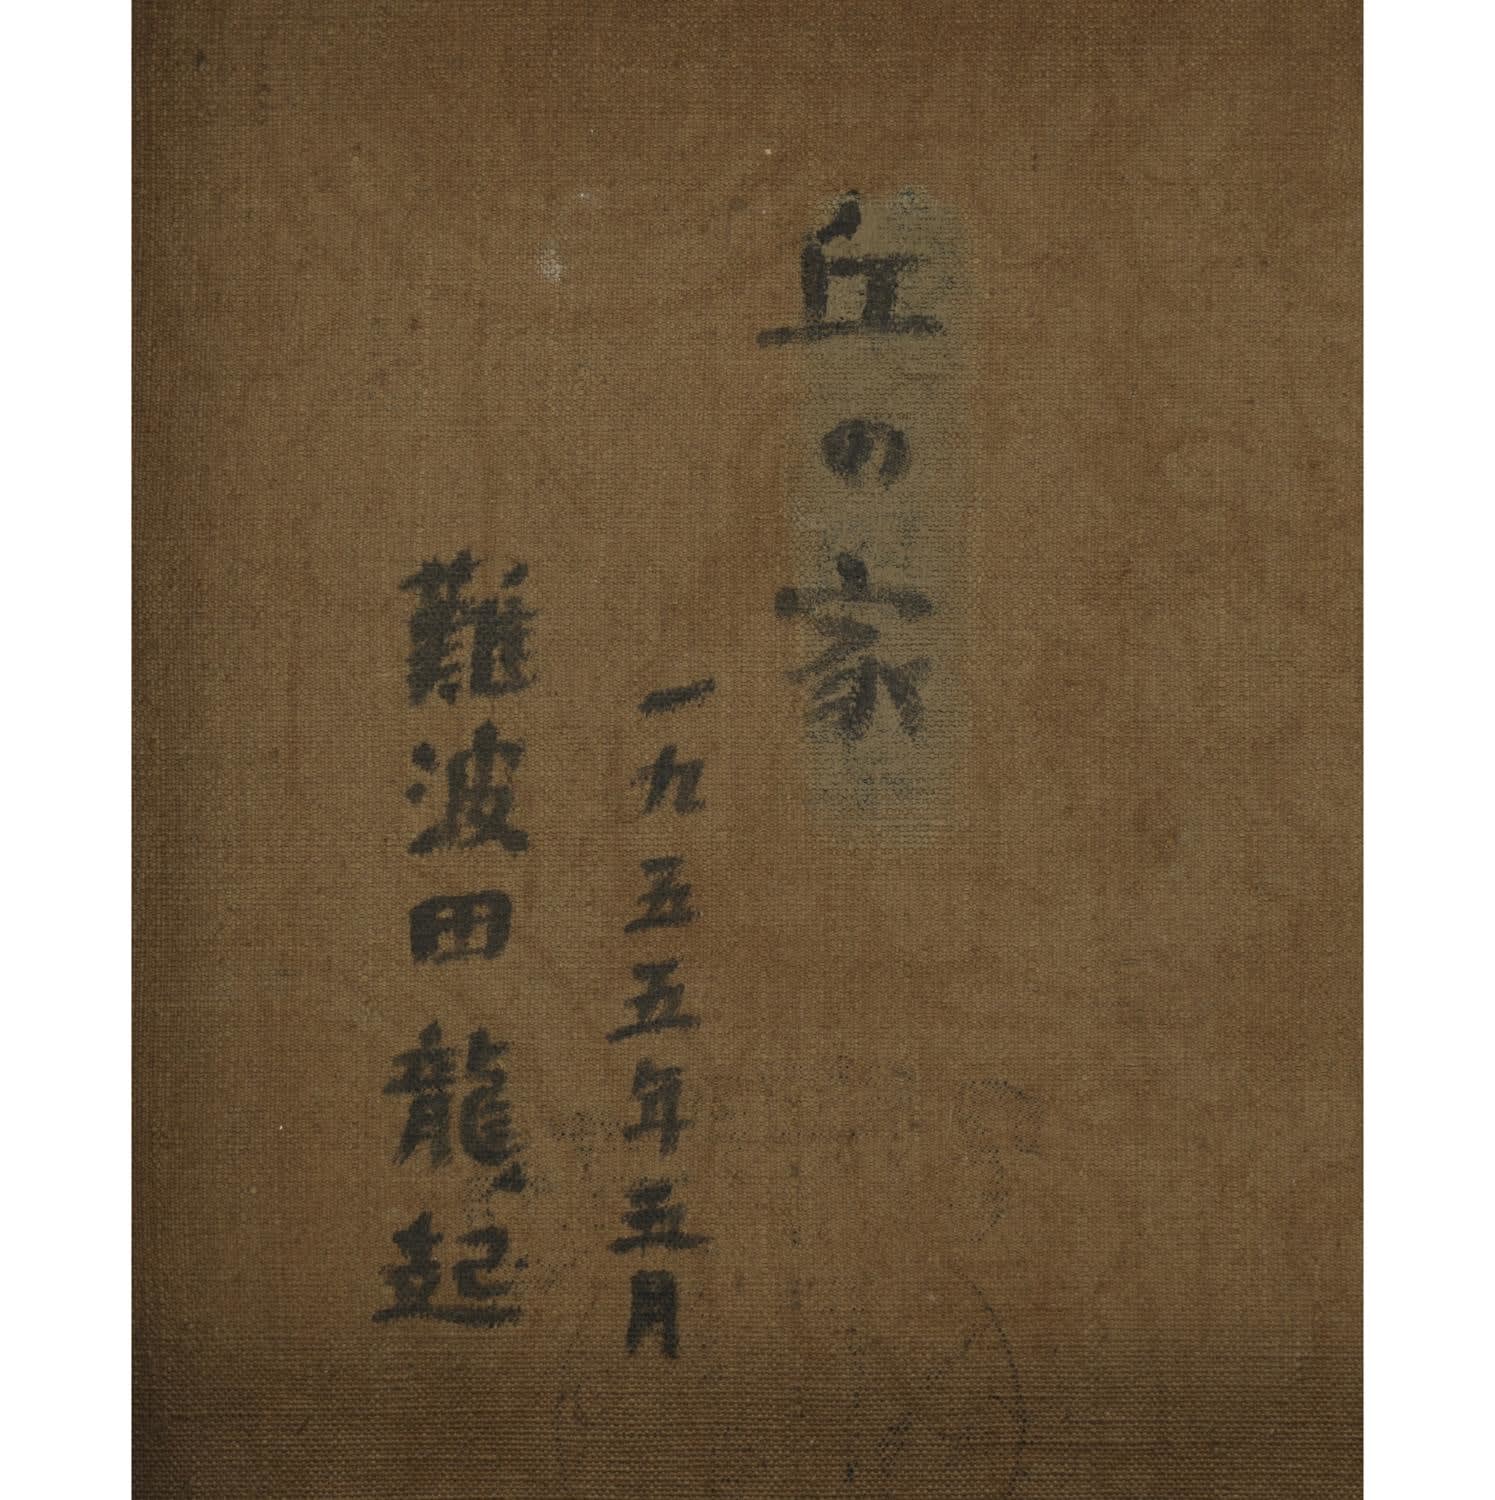 丘の家
一九五五年五月
難波田龍起